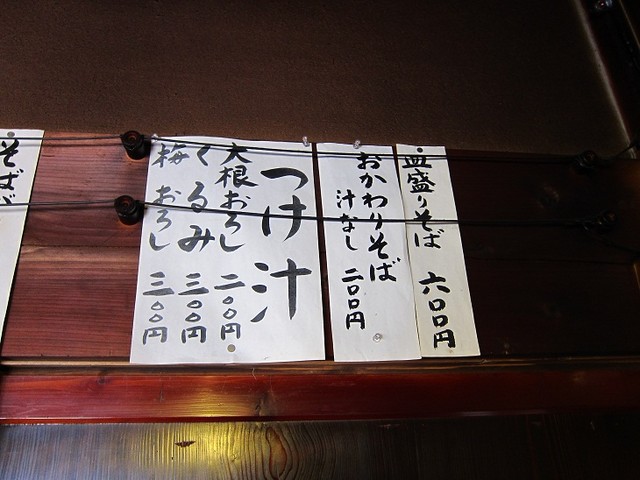 皿盛りそば 六〇〇円
おかわりそば
汁なし 二〇〇円
つけ汁
大根おろし 二〇〇円
くるみ 三〇〇円
梅おろし 三〇〇円
そば